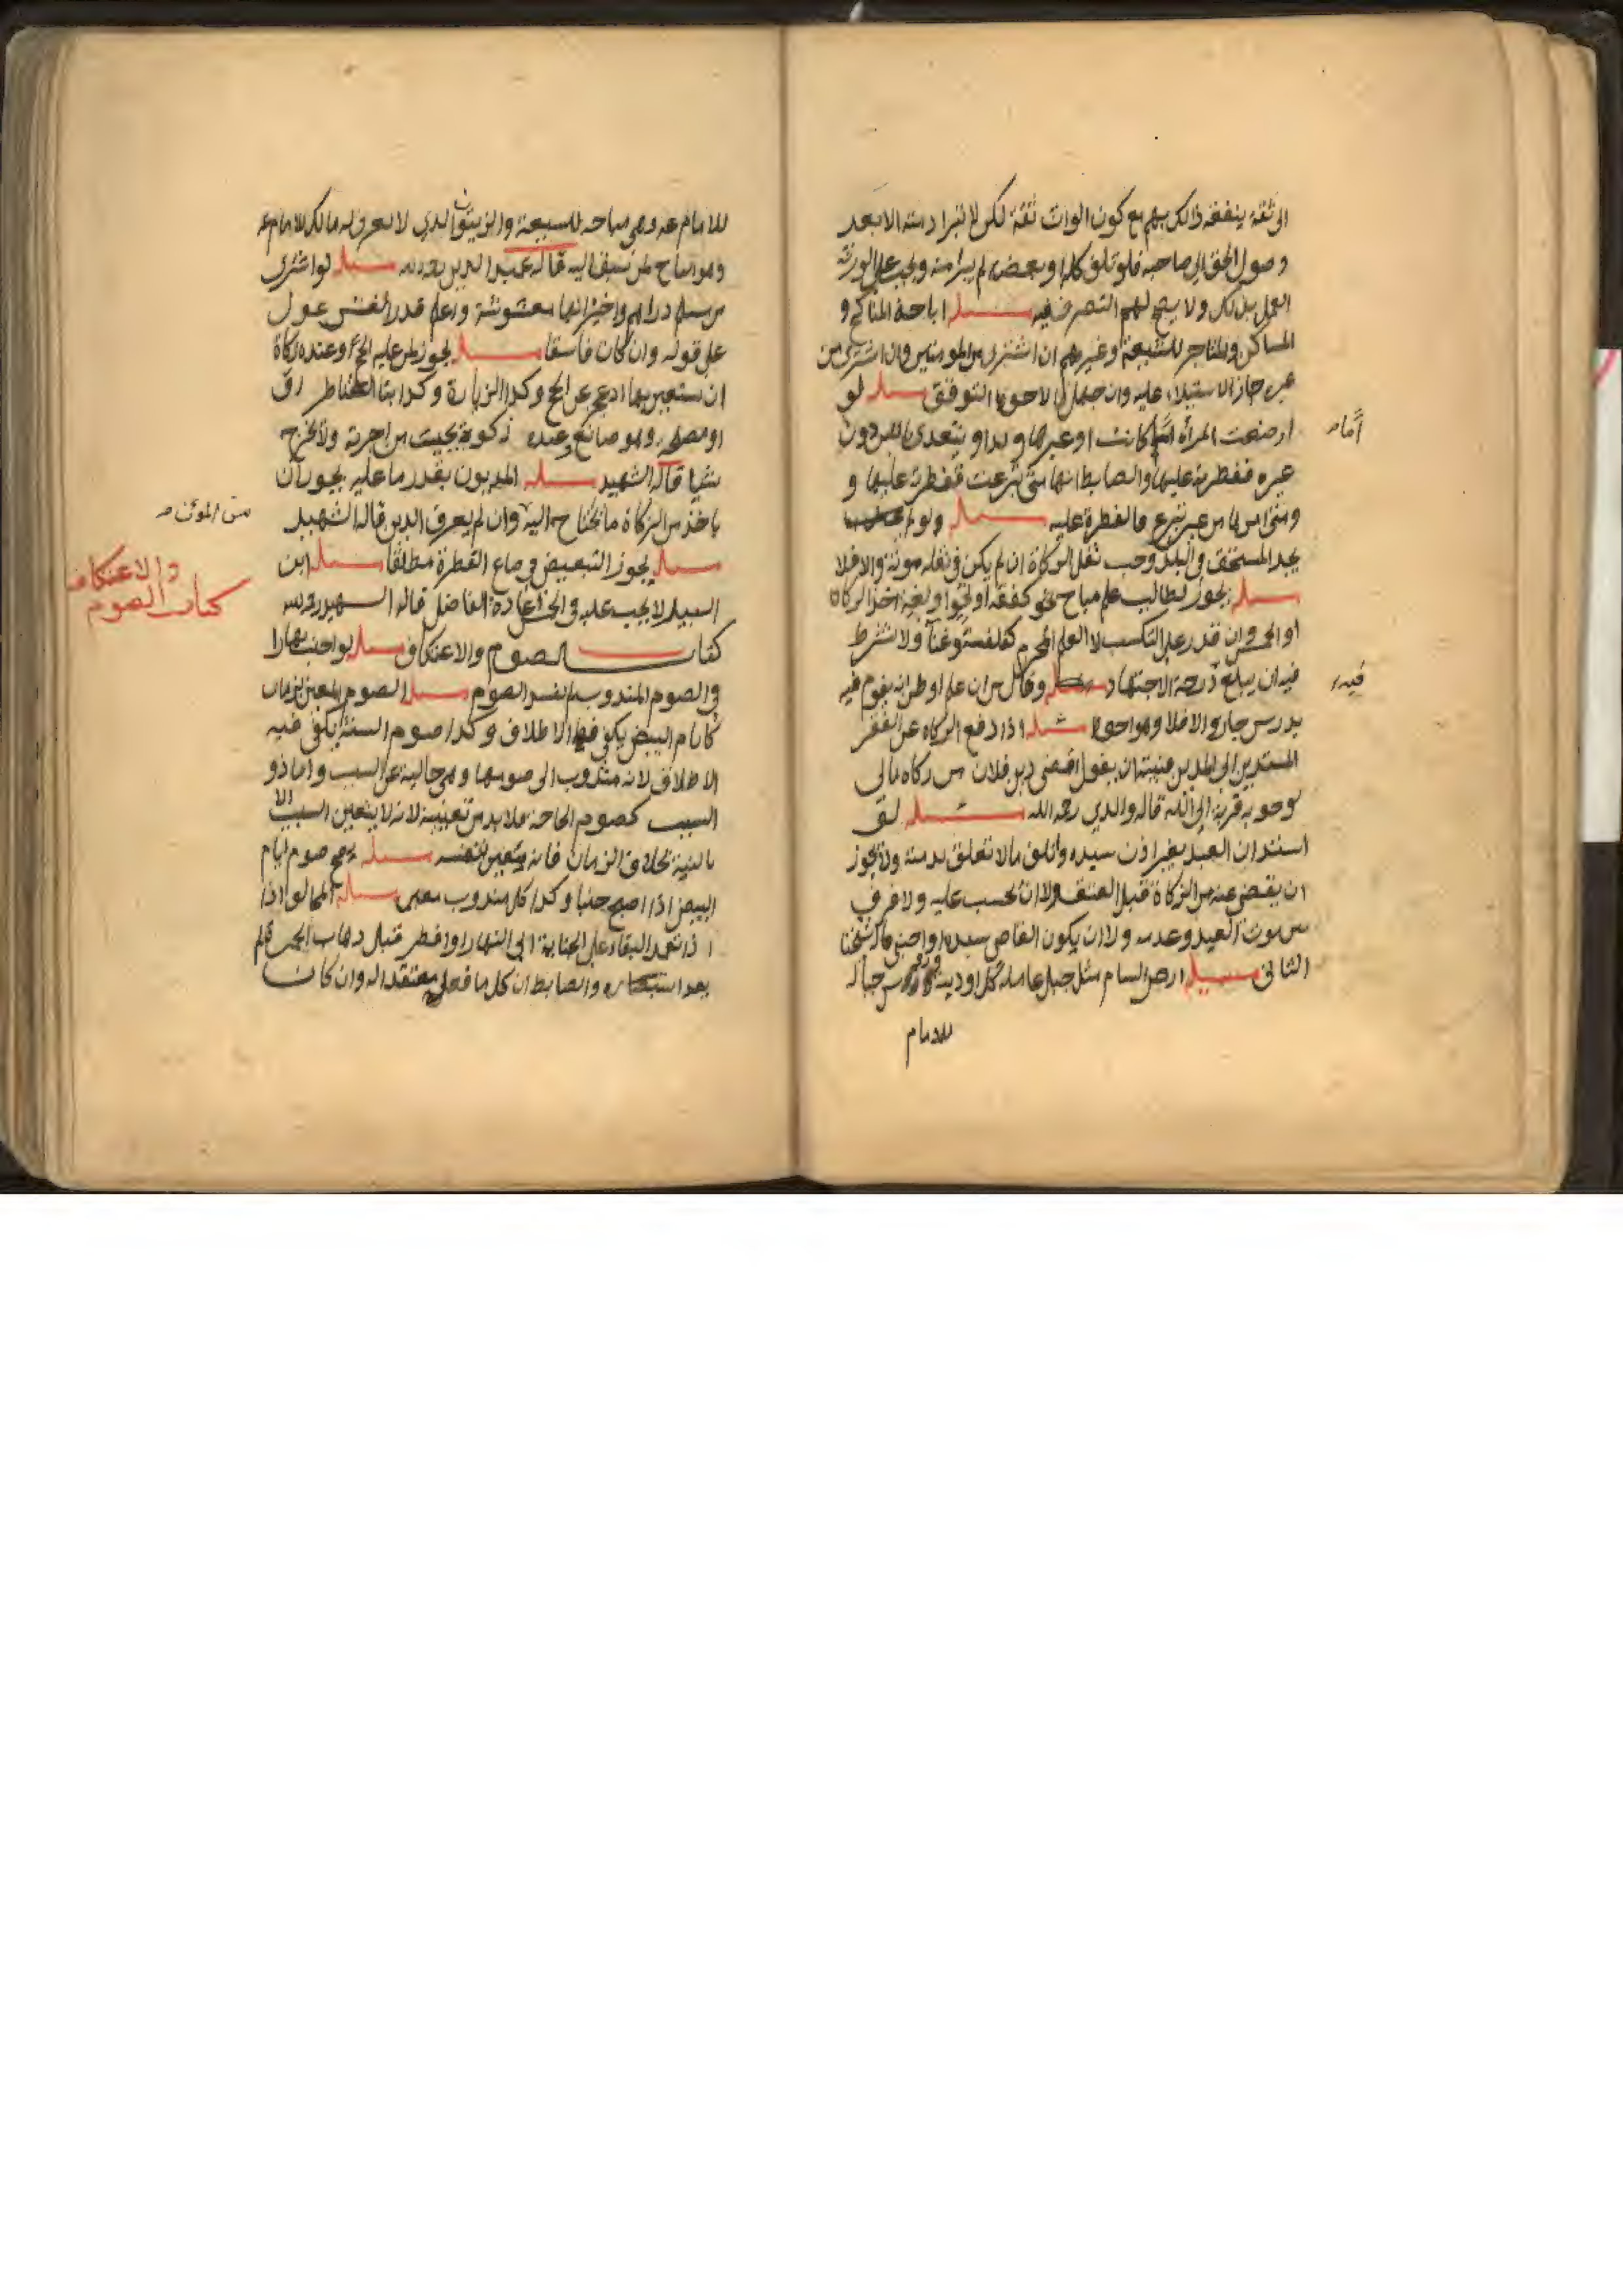 الى ثقة ينفقه ذالك بهم مع كون الوارث ثقة لكن لا تبرا ذمته الا بعد
وصول الحق الى صاحبه فلو تلف كله او بعضه لم يبرا منه ويجب على الورثة
العمل بذلك ولا يصح لهم التصرف فيه مسئله اباحة المناكح و
المساكن والمتاجر للشيعة وغيرهم ان اشترى من المومنين وان اشترى من
غيره جاز الاستيلاء عليه وان جهل فالاحوط التوقف مسئله لو
ارضعت المرأة اما كانت او غيرها ولدا و يتغدى باللبن دون
غيره ففطرته عليها والضابط انها متى تبرعت ففطرته عليها و
ومتى من غير تبرع فالفطرة عليه مسئله ولو لم
يجد المستحق في البلد وجب نقل الزكاة ان لم يكن في نقله مونة والا فلا
مسئله يجوز لطالب علم مباح نحو كفقه او نحو او لغة اخذ الزكاة
او الخمس وان قدر على التكسب لا العلم المحرم كفلسفة وغنآ ولا يشترط
فيه ان يبلغ درجة الاجتهاد وقال من ان علم او ظن انه يقوم فيه
بدرس جاز والا فلا وهو احوط مسئله اذا دفع الزكاة عن الفقير
المستدين الى المدين فنيته ان يقول اقضى دين فلان من زكاة مالى
لوجوبه قربة الى الله قاله والدي رحمه الله مسئله لو
استدان العبد بغير اذن سيده واتلف مالا تعلق بذمته ولا يجوز
ان يقضى عنه من الزكاة قبل العتق ولا ان يحسب عليه ولا فرق
بين موت العبد وعدمه ولا ان يكون القاضى سيده او اجنبى قاله شيخنا
الثانى مسئله ارض الشام مثل جبل عامله كل اودية ورؤس جباله
للامام
اما
فيه
للامام عه وهى مباحه للشيعة والزيتون الذي لا يعرف له مالك للامام عه
وهو مباح لمن سبق اليه قاله عميد الدين رحمه الله مسئله لو اشترى
من مسلم دراهم واخبر انها مغشوشة وعلم قدر الغش عول
على قوله وان كان فاسقا مسئله يجوز لمن عليه الحج وعنده زكاة
ان يستعين بها اذ عجز عن الحج وكذا الزيارة وكذا بناء القناطر
او مصلحه وهو صانع وعنده زكوة بحيث من اجرته ولا يخرج
شيا قاله الشهيد مسئله المديون بقدر ما عليه يجوز ان
ياخذ من الزكاة ما يحتاج اليه وان لم يعرف الدين قاله الشهيد
مسئله يجوز التبعيض في صاع الفطرة مطلقا مسئله ابن
السبيل لا يجب عليه اعادة الفاضل قاله الشهيد رحمه الله
كتاب الصوم والاعتكاف مسئله لو اجنب نهارا
في الصوم المندوب لم يفسد الصوم مسئله الصوم المعين الزمان
كايام البيض يكفى فيها الاطلاق وكذا صوم السنة يكفى فيه
الاطلاق لانه مندوب الى صومها وهى خالية عن السبب واما ذو
السبب كصوم الحاجة فلا بد من تعيينه لانه لا يتعين السبب الا
بالنية بخلاف الزمان فانه يتعين بنفسه مسئله يصح صوم ايام
البيض اذا اصبح جنبا وكذا كل مندوب معين مسئله المخالف اذا
اذ تعمد البقاء على الجنابة الى النهار او افطر قبل ذهاب الحمرة ثم
بعد استبصاره والضابط ان كل ما فعله معتقدا له وان كان
من المؤنة
كتاب الصوم
والاعتكاف